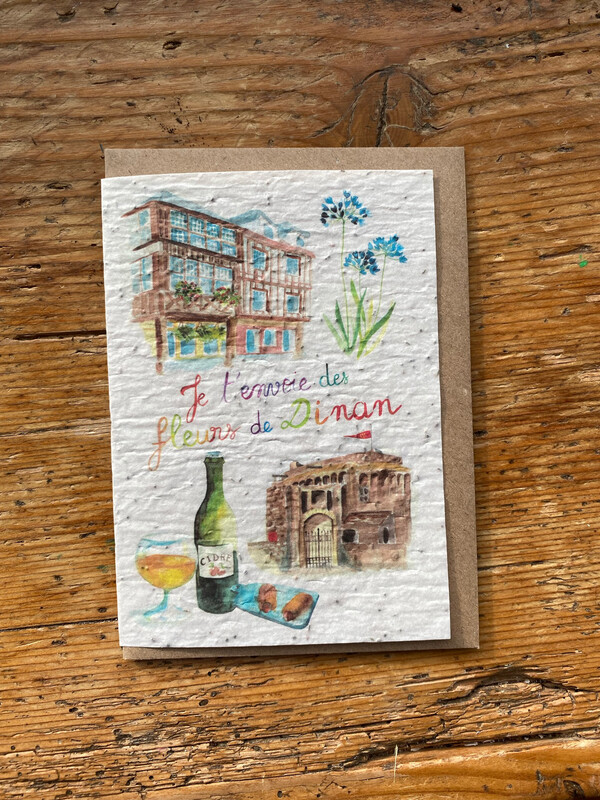 Je t'envoie des
fleurs de Dinan
CIDRE